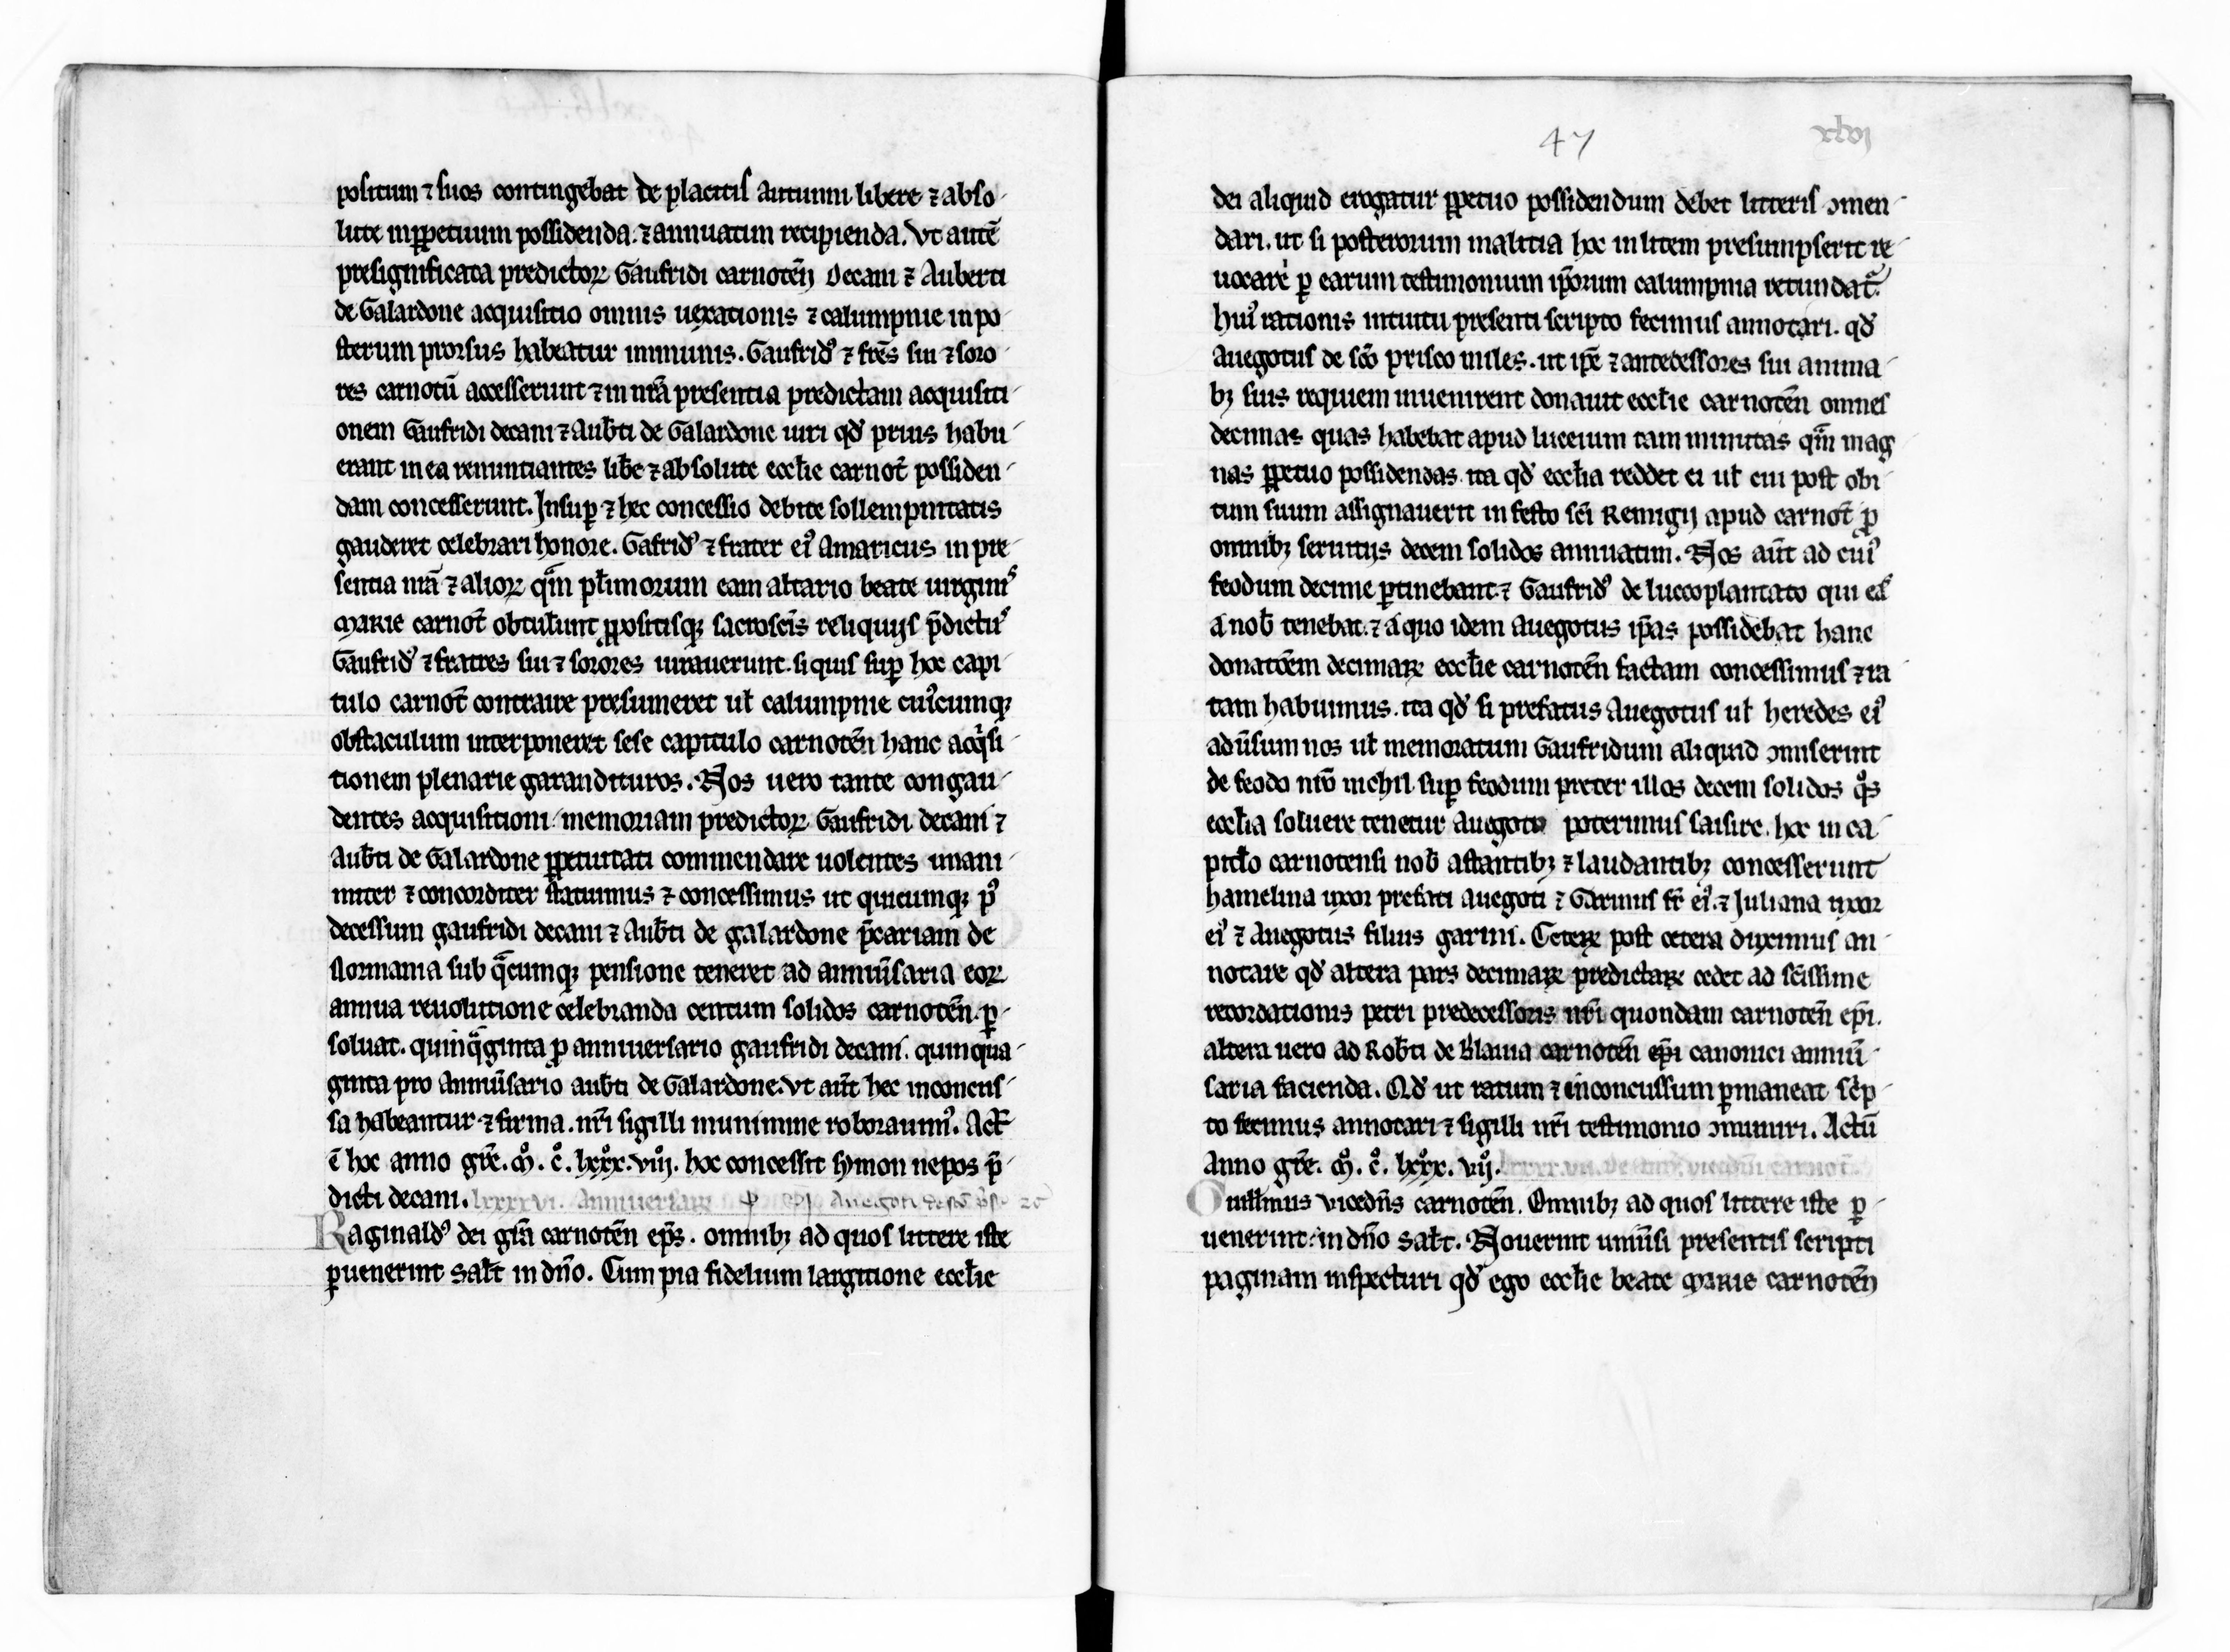 positum ⁊ suos contingebat de placitis autunni libere ⁊ abso
lute inp̱petuum possidenda. ⁊ annuatim recipienda. Vt autē
presignificata predictoꝝ Gaufridi carnotēn Decani ⁊ Auberti
de Galardone acquisitio omnis uexationis ⁊ calumpnie in po
sterum prorsus habeatur immunis. Gaufridꝰ ⁊ fr̄es sui ⁊ soro
res carnotū accesserunt ⁊ in nr̄a presentia predictam acquisiti
onem Gaufridi decani ⁊ Aub̄ti de Galardone iuri qđ prius habu
erant in ea renuntiantes lib̄e ⁊ absolute eccł̄ie carnot̄ possiden
dam concesserunt. Insuꝑ ⁊ hec concessio debite sollempnitatis
gauderet celebrari honore. Gafridꝰ ⁊ frater eiꝰ Amaricus in pre
sentia nr̄a ⁊ alioꝝ qm̄ pł̄imorum eam altario beate uirginis
marie carnot̄ obtulerunt ꝓpositisqꝫ sacrosc̄is reliquijs p̄dictus
Gaufridꝰ ⁊ fratres sui ⁊ sorores iurauerunt. si quis suꝑ hoc capi
tulo carnot̄ contraire presumeret uł calumpnie cuiꝰcumqꝫ
obstaculum interponeret sese capitulo carnotēn hanc acq̇isi
tionem plenarie garandituros. Nos uero tante congau
dentes acquisitioni memoriam predictoꝝ Gaufridi decani ⁊
Aub̄ti de Galardone ꝑpetuitati commendare uolentes unani
miter ⁊ concorditer statuimus ⁊ concessimus ut quicumqꝫ pꝰ
decessum gaufridi decani ⁊ Aub̄ti de galardone p̄cariam de
Normania sub q̄cumqꝫ pensione teneret ad anniūsaria eoꝝ
annua reuolutione celebranda centum solidos carnotēn. ꝑ
soluat. quinq̄ginta ꝓ anniuersario gaufridi decani. quinqua
ginta pro Anniūsario aub̄ti de Galardone. Vt aūt hec inconcus
sa habeantur ⁊ firma. nr̄i sigilli munimine roborauimꝰ. Act̄
ē hoc anno gr̄e. m̊. c̊. lxxx̊. viij̊. hoc concessit symon nepos p̄
dicti decani. lxxxxvi. Anniuersar
Raginaldꝰ dei gr̄a carnotēn ep̄s. omnibꝫ ad quos littere iste
ꝑuenerint sal̄t in dn̄o. Cum pia fidelium largitione eccł̄ie
47
xlvj
dei aliquid erogatur ꝑpetuo possidendum debet litteris ꝯmen
dari. ut si posterorum malitia hoc in litem presumpserit re
uocare ꝑ earum testimonium ip̄orum calumpnia retundat᷑.
huiꝰ rationis intuitu presenti scripto fecimus annotari. qđ
Auegotus de sc̄o prisco miles. ut ip̄e ⁊ antecessores sui anima
bꝫ suis requiem inuenirent donauit eccł̄ie carnotēn omnes
decimas quas habebat apud luceium tam minutas qm̄ mag
nas ꝑpetuo possidendas. ita qđ eccł̄ia reddet ei uł cui post obi
tum suum assignauerit in festo sc̄i Remigij apud carnot̄ ꝓ
omnibꝫ seruitijs decem solidos annuatim. Nos aūt ad cuiꝰ
feodum decime ꝑtinebant. ⁊ Gaufridꝰ de lucoplantato qui eas
a nob̄ tenebat. ⁊ a quo idem Auegotus ip̄as possidebat hanc
donatōem decimaꝝ eccł̄ie carnotēn factam concessimus ⁊ ra
tam habuimus. ita qđ si prefatus Auegotus uł heredes eiꝰ
adūsum nos uł memoratum Gaufridum aliquid ꝯmiserint
de feodo nr̄o nichil suꝑ feodum preter illos decem solidos qͦs
eccł̄ia soluere tenetur Auegoto poterimus saisire. hoc in ca
pitl̄o carnotensi nob̄ astantibꝫ ⁊ laudantibꝫ concesserunt
hamelina uxor prefati Auegoti ⁊ Garinus fr̄ eiꝰ. ⁊ Juliana uxor
eiꝰ ⁊ Auegotus filius garini. Ceteꝝ post cetera diximus an
notare qđ altera pars decimaꝝ predictaꝝ cedet ad sc̄issime
recordationis petri predecessoris nr̄i quondam carnotēn ep̄i.
altera uero ad Rob̄ti de blauia carnotēn ep̄i canonici anniū
saria facienda. Qđ ut ratum ⁊ inconcussum ꝑmaneat sc̄ip
to fecimus annotari ⁊ sigilli nr̄i testimonio ꝯmuniri. Actū
Anno gr̄e. m̊. c̊. lxxx̊. vij̊. lxxxx.vii.
Guill̄mus vicedn̄s carnotēn. Omnibꝫ ad quos littere iste ꝑ
uenerint. in dn̄o sal̄t. Nouerint uniūsi presentis scripti
paginam inspecturi qđ ego eccł̄ie beate marie carnotēn